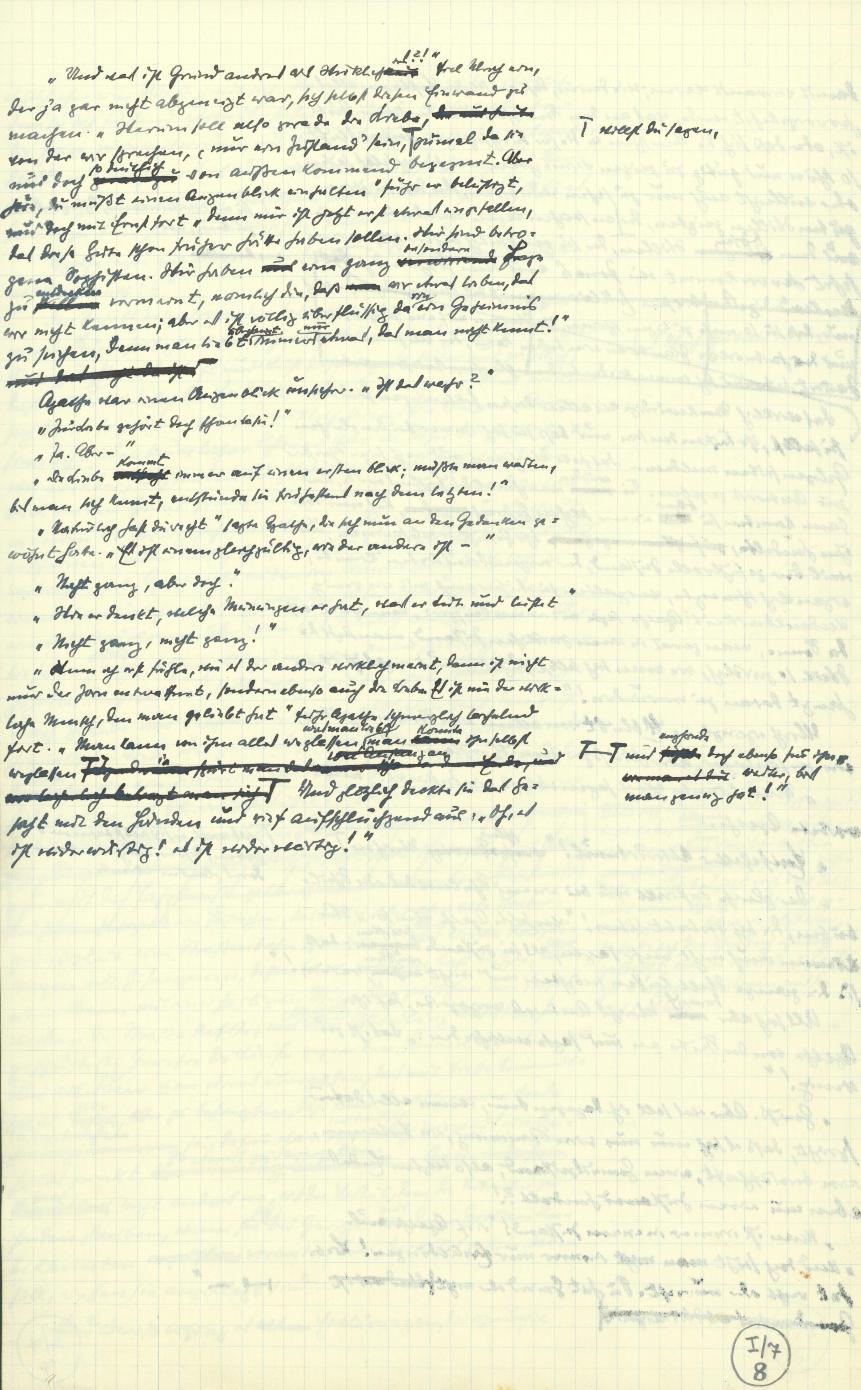 „Und was ist Grund andres als Wirklich sein?!“ fiel Ulrich ein,
der ja gar nicht abgeneigt war, sich selbst diesen Einwand zu
machen. „Warum soll also gerade die Liebe,
T willst du sagen,
von der wir sprechen, ‚nur ein Zustand‘ sein, T zumal da sie
uns doch so deutlich von außen kommend begegnet. Aber
du mußt einen Augenblick einhalten“ fuhr er belustigt,
und doch mit Ernst fort „denn mir ist jetzt erst etwas eingefallen,
das diese Seite schon früher hätte haben sollen. Wir sind betro-
gene Sophisten. Wir haben eine ganz besondere Frage
zu entdecken vermeint, nämlich die, daß wir etwas lieben, das
wir nicht kennen; aber es ist völlig überflüssig da ein Geheimnis
zu suchen, denn man liebt immer etwas, das man nicht kennt!“
Agathe war einen Augenblick unsicher. „Ist das wahr?“
„Zur Liebe gehört doch Phantasie!“
„Ja. Aber – “
„Die Liebe kommt immer auf einen ersten Blick; müßte man warten,
bis man sich kennt, entstünde sie bestenfalls nach dem letzten!“
„Natürlich hast du recht“ sagte Agathe, die sich nun an den Gedanken ge=
wöhnt hatte. „Es ist einem gleichgültig, wie der andere ist – “
„Nicht ganz, aber doch.“
„Wie er denkt, welche Meinungen er hat, was er tut und leistet“
„Nicht ganz, nicht ganz!“
„Wenn ich erst fühle, wie es der andere wirklich meint, dann ist nicht
nur der Zorn entwaffnet, sondern ebenso auch die Liebe. Es ist nie der wirk=
liche Mensch, den man geliebt hat“ fuhr Agathe schmerzlich
fort. „Man kann von ihm alles weglassen, man könnte ihn selbst
weglassen T
T und doch ebenso
weiter, bis
man genug hat!“
Und plötzlich deckte sie das Ge=
sicht mit den Händen und rief aufschluchzend aus: „Oh, es
ist widerwärtig! es ist widerwärtig!“
I/7
8